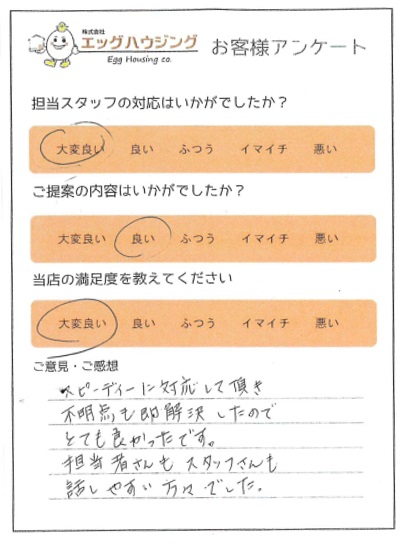 株式会社
エッグハウジング
Egg Housing co.
お客様アンケート
担当スタッフの対応はいかがでしたか？
大変良い 良い ふつう イマイチ 悪い
ご提案の内容はいかがでしたか？
大変良い 良い ふつう イマイチ 悪い
当店の満足度を教えてください
大変良い 良い ふつう イマイチ 悪い
ご意見・ご感想
スピーディーに対応して頂き
不明点も即解決したので
とても良かったです。
担当者さんもスタッフさんも
話しやすい方々でした。